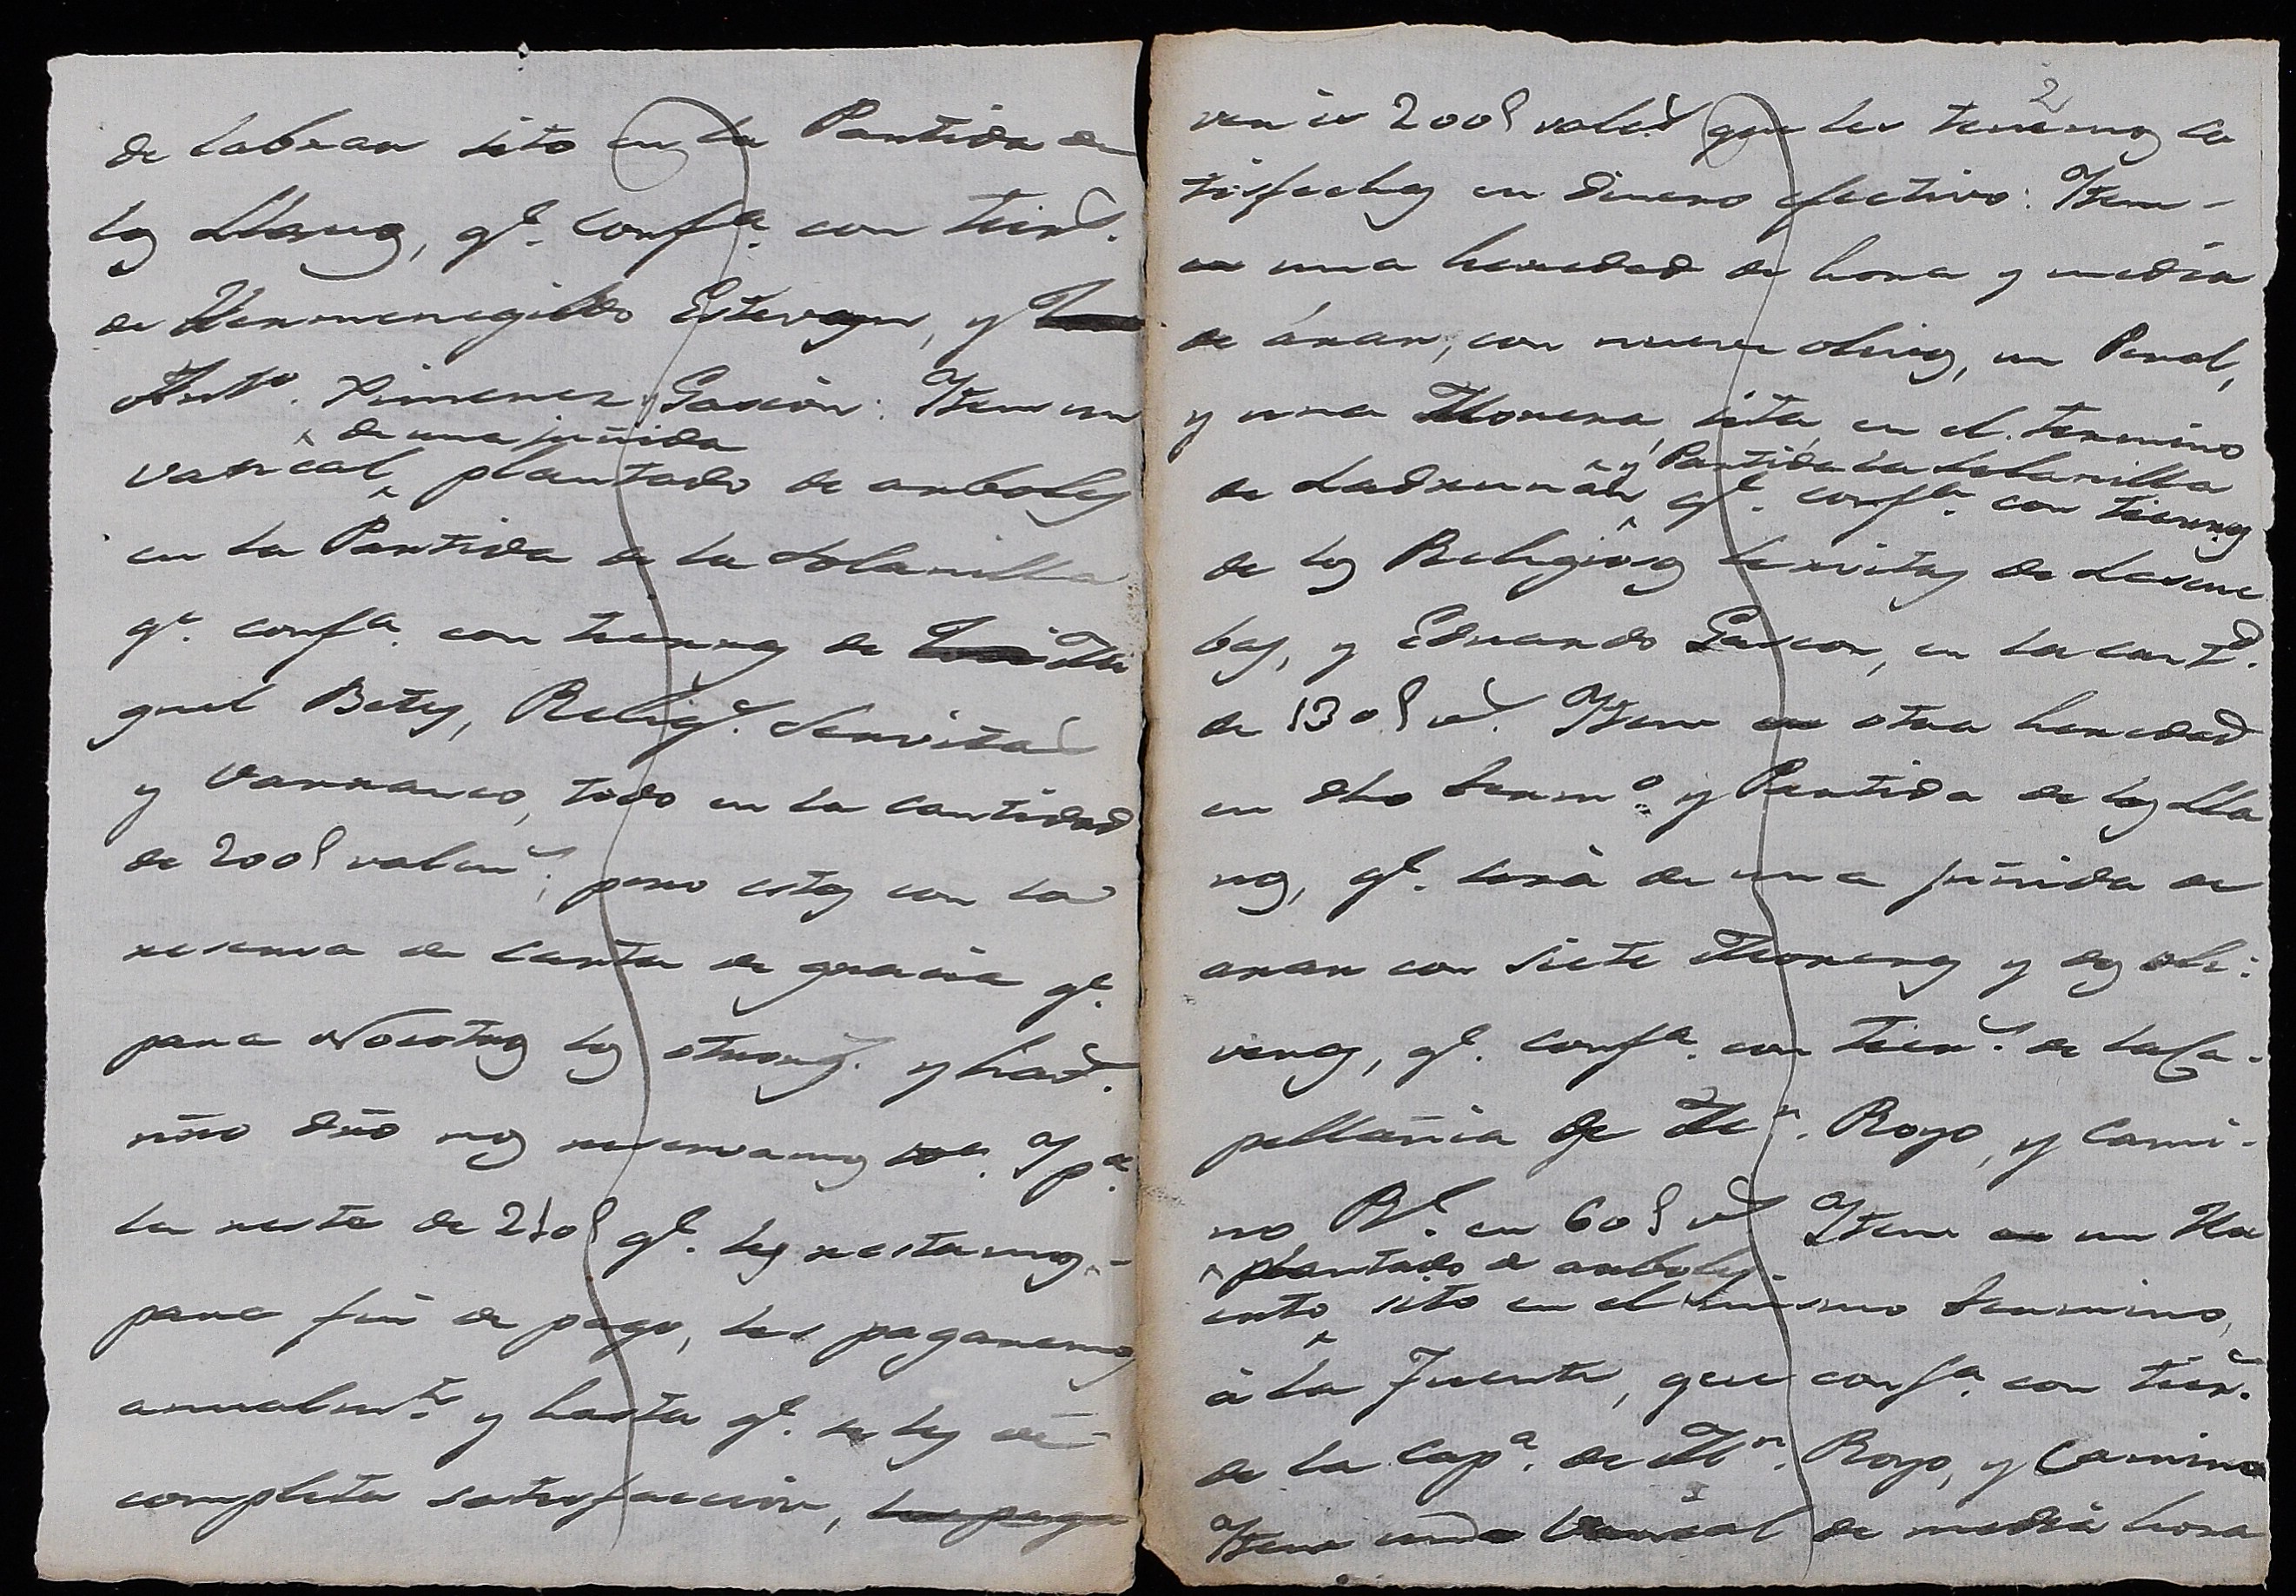 de labrar sito en la Partida de
los Llanos, qe. confta. con tierrs.
de Hermenegildo Estevan, y
Anto. Ximenez y Gascón: Item un
^ de una juñida
varical ^ plantado de arboles
en la Partida de la Solanilla
qe. confta. con tierras de Mi
guel Betes, Religs. Servitas
y Varranco, todo en la cantidad
de 200 ſ valens.; pero estas con la
reserva de carta de gracia qe.
para Nosotros los otorgs. y havs.
nr̃o dr̃o nos reservamos Y pa.
la resta de 210 ſ qe. les restamos,-
para fin de pago, les pagaremos
anualmte. y hasta qe. se les dé
completa satisfacción, les paga
2
ven es 200 ſ vales. que les tenemos sa
tisfechos en dinero efectivo: Item-
en una heredad de hora y media
de arar, con nueve olivos, un Peral,
y una Morera, sita en el termino
^ y Partida la Solanilla
de Ladruñán ^ qe. confta. con tierras
de los Religiosos Servitas de las Cue
bas, y Eduardo Gascon, en la cantd.
de 130 ſ vs. Item en otra heredad
en dho termo. y Partida de los Lla
nos, qe. será de una juñida de
arar con siete Moreras y dos oli:
veras, qe. confta. con tierrs. de la Ca-
pellañia de Mn. Royo, y Cami-
no Rl. en 60 ſ vs. Item en un Hu
^ plantado de arboles.
erto ^ sito en el mismo termino,
á la Fuente, que confta. con tierrs.
de la Capa. de Mn. Royo, y Camino
Item un Varical de media hora